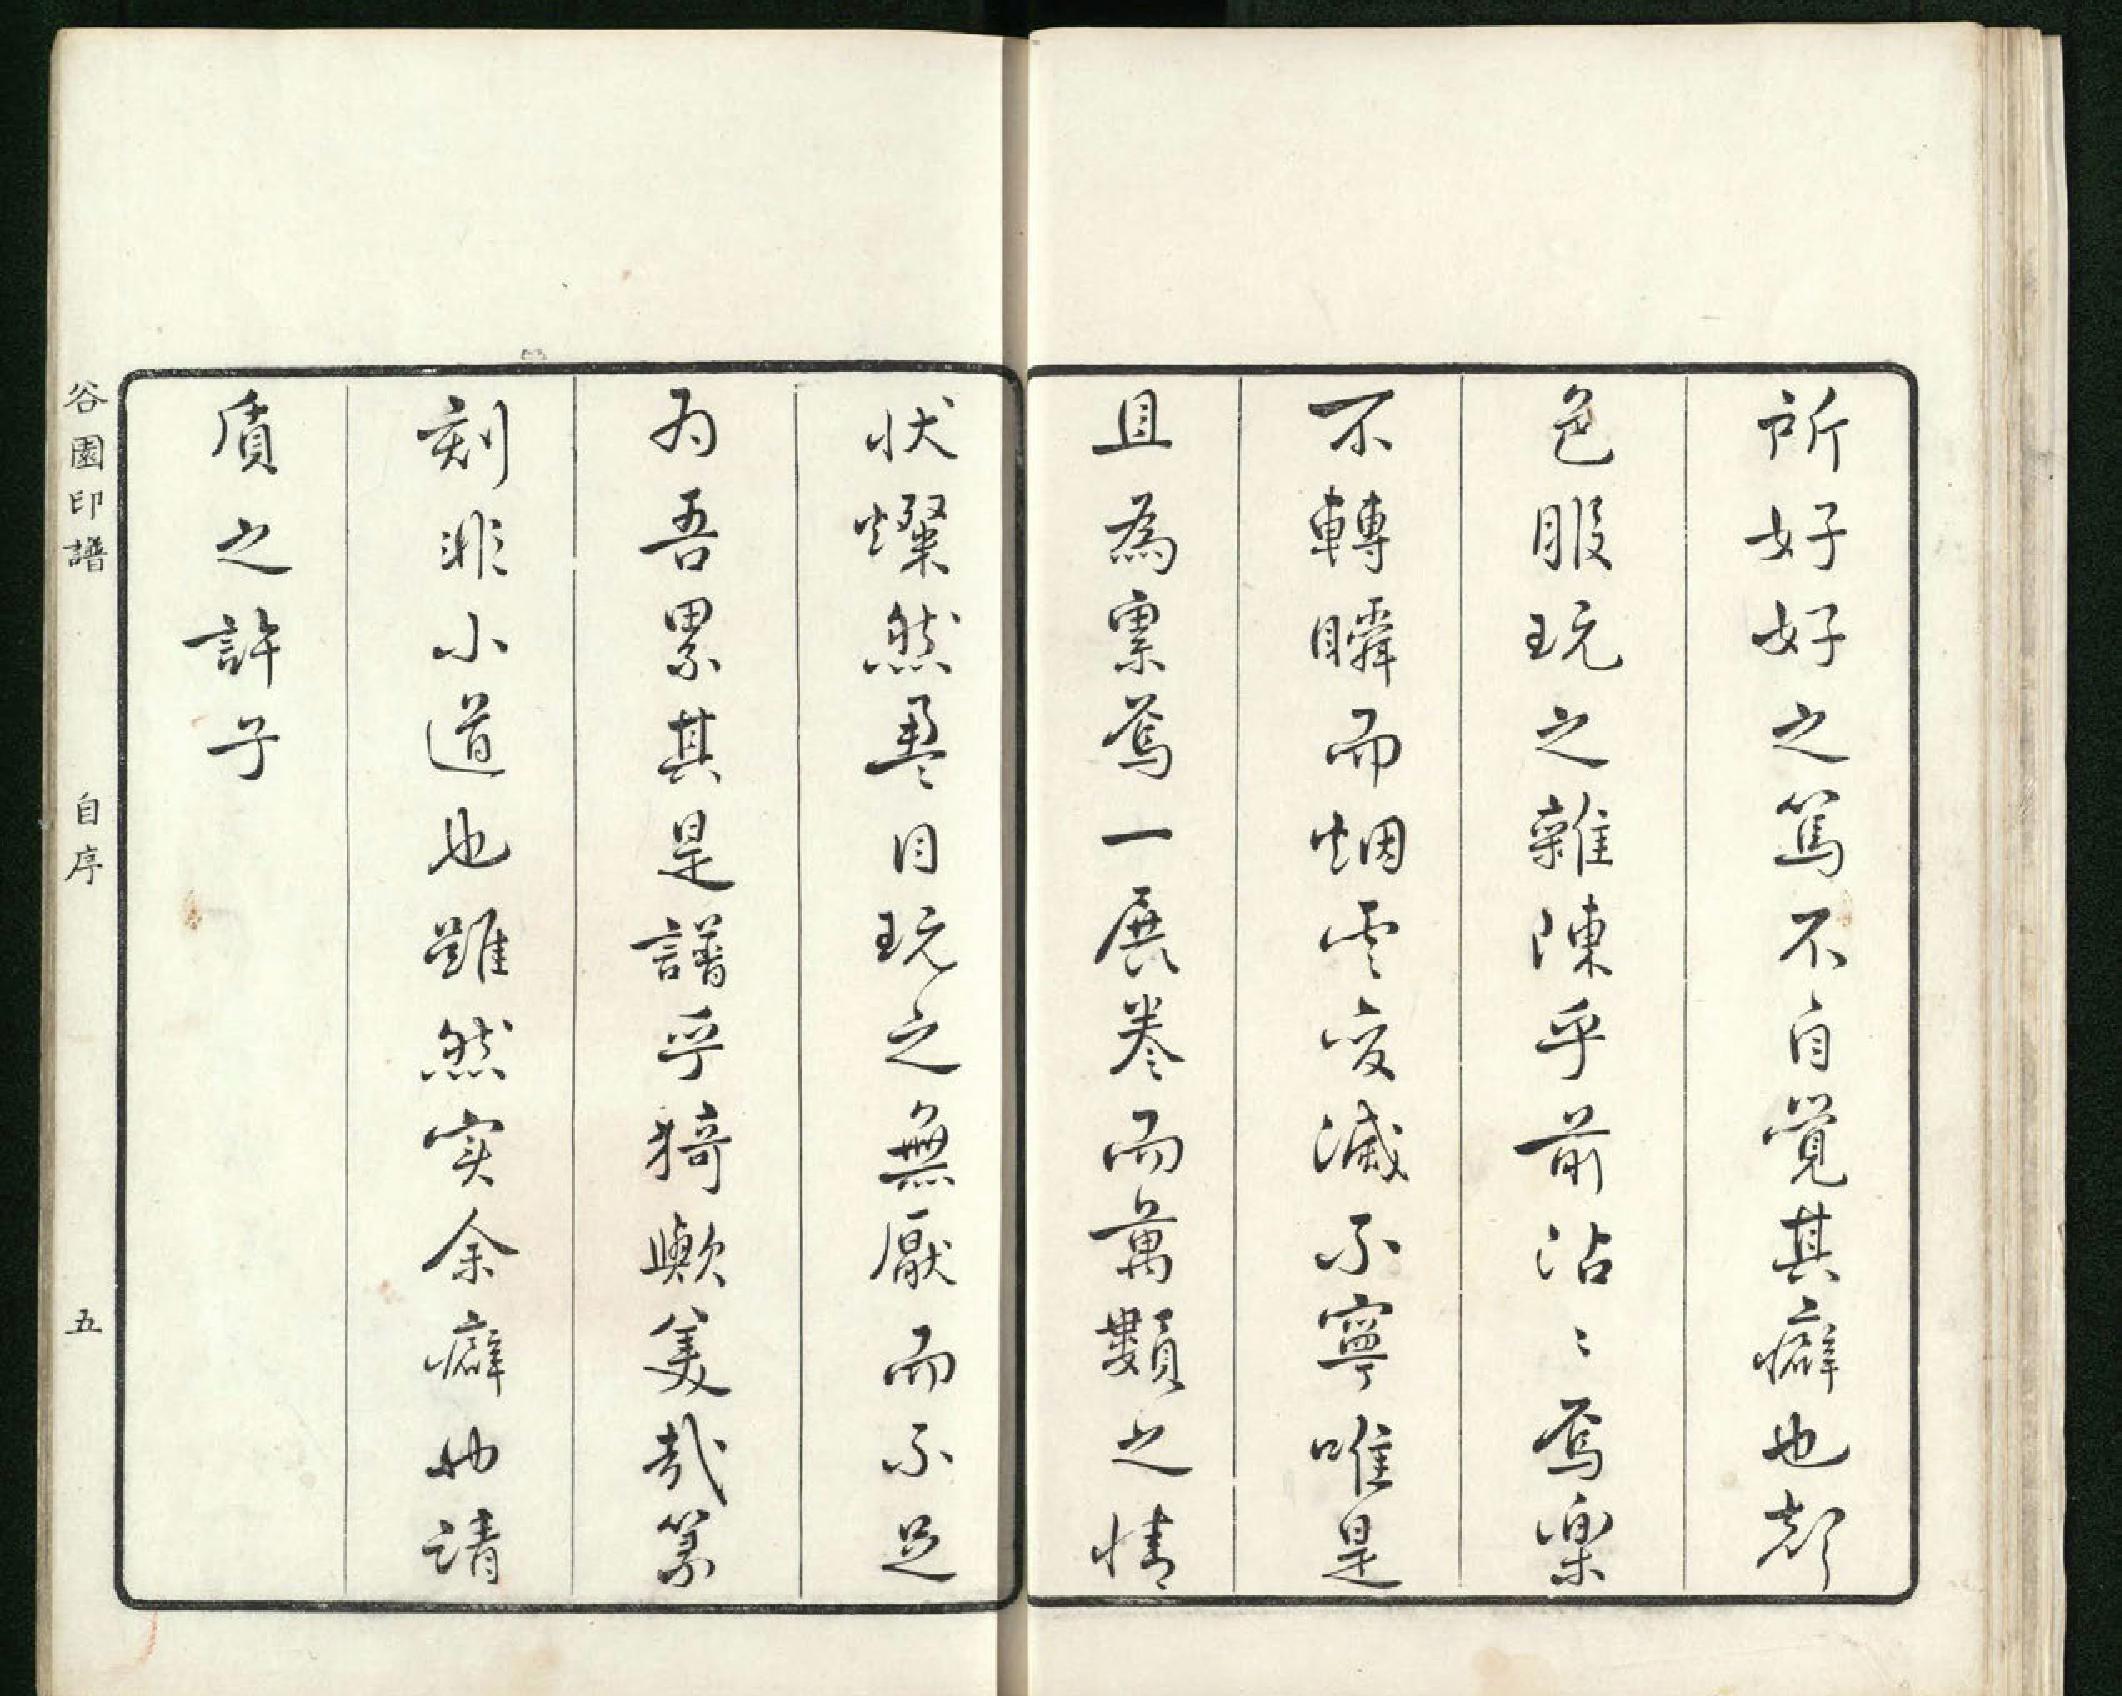 所好好之篤不自覚其癖也顔
色服玩之雜陳乎前沾〻焉樂
不轉瞬而烟雲变滅不寧唯是
且為禀焉一展卷而萬類之情
状燦然盈目玩之無厭而不足
为吾累其是譜乎猗歟美哉篆
刻非小道也雖然实余癖也請
质之許子
谷園印譜
自序
五